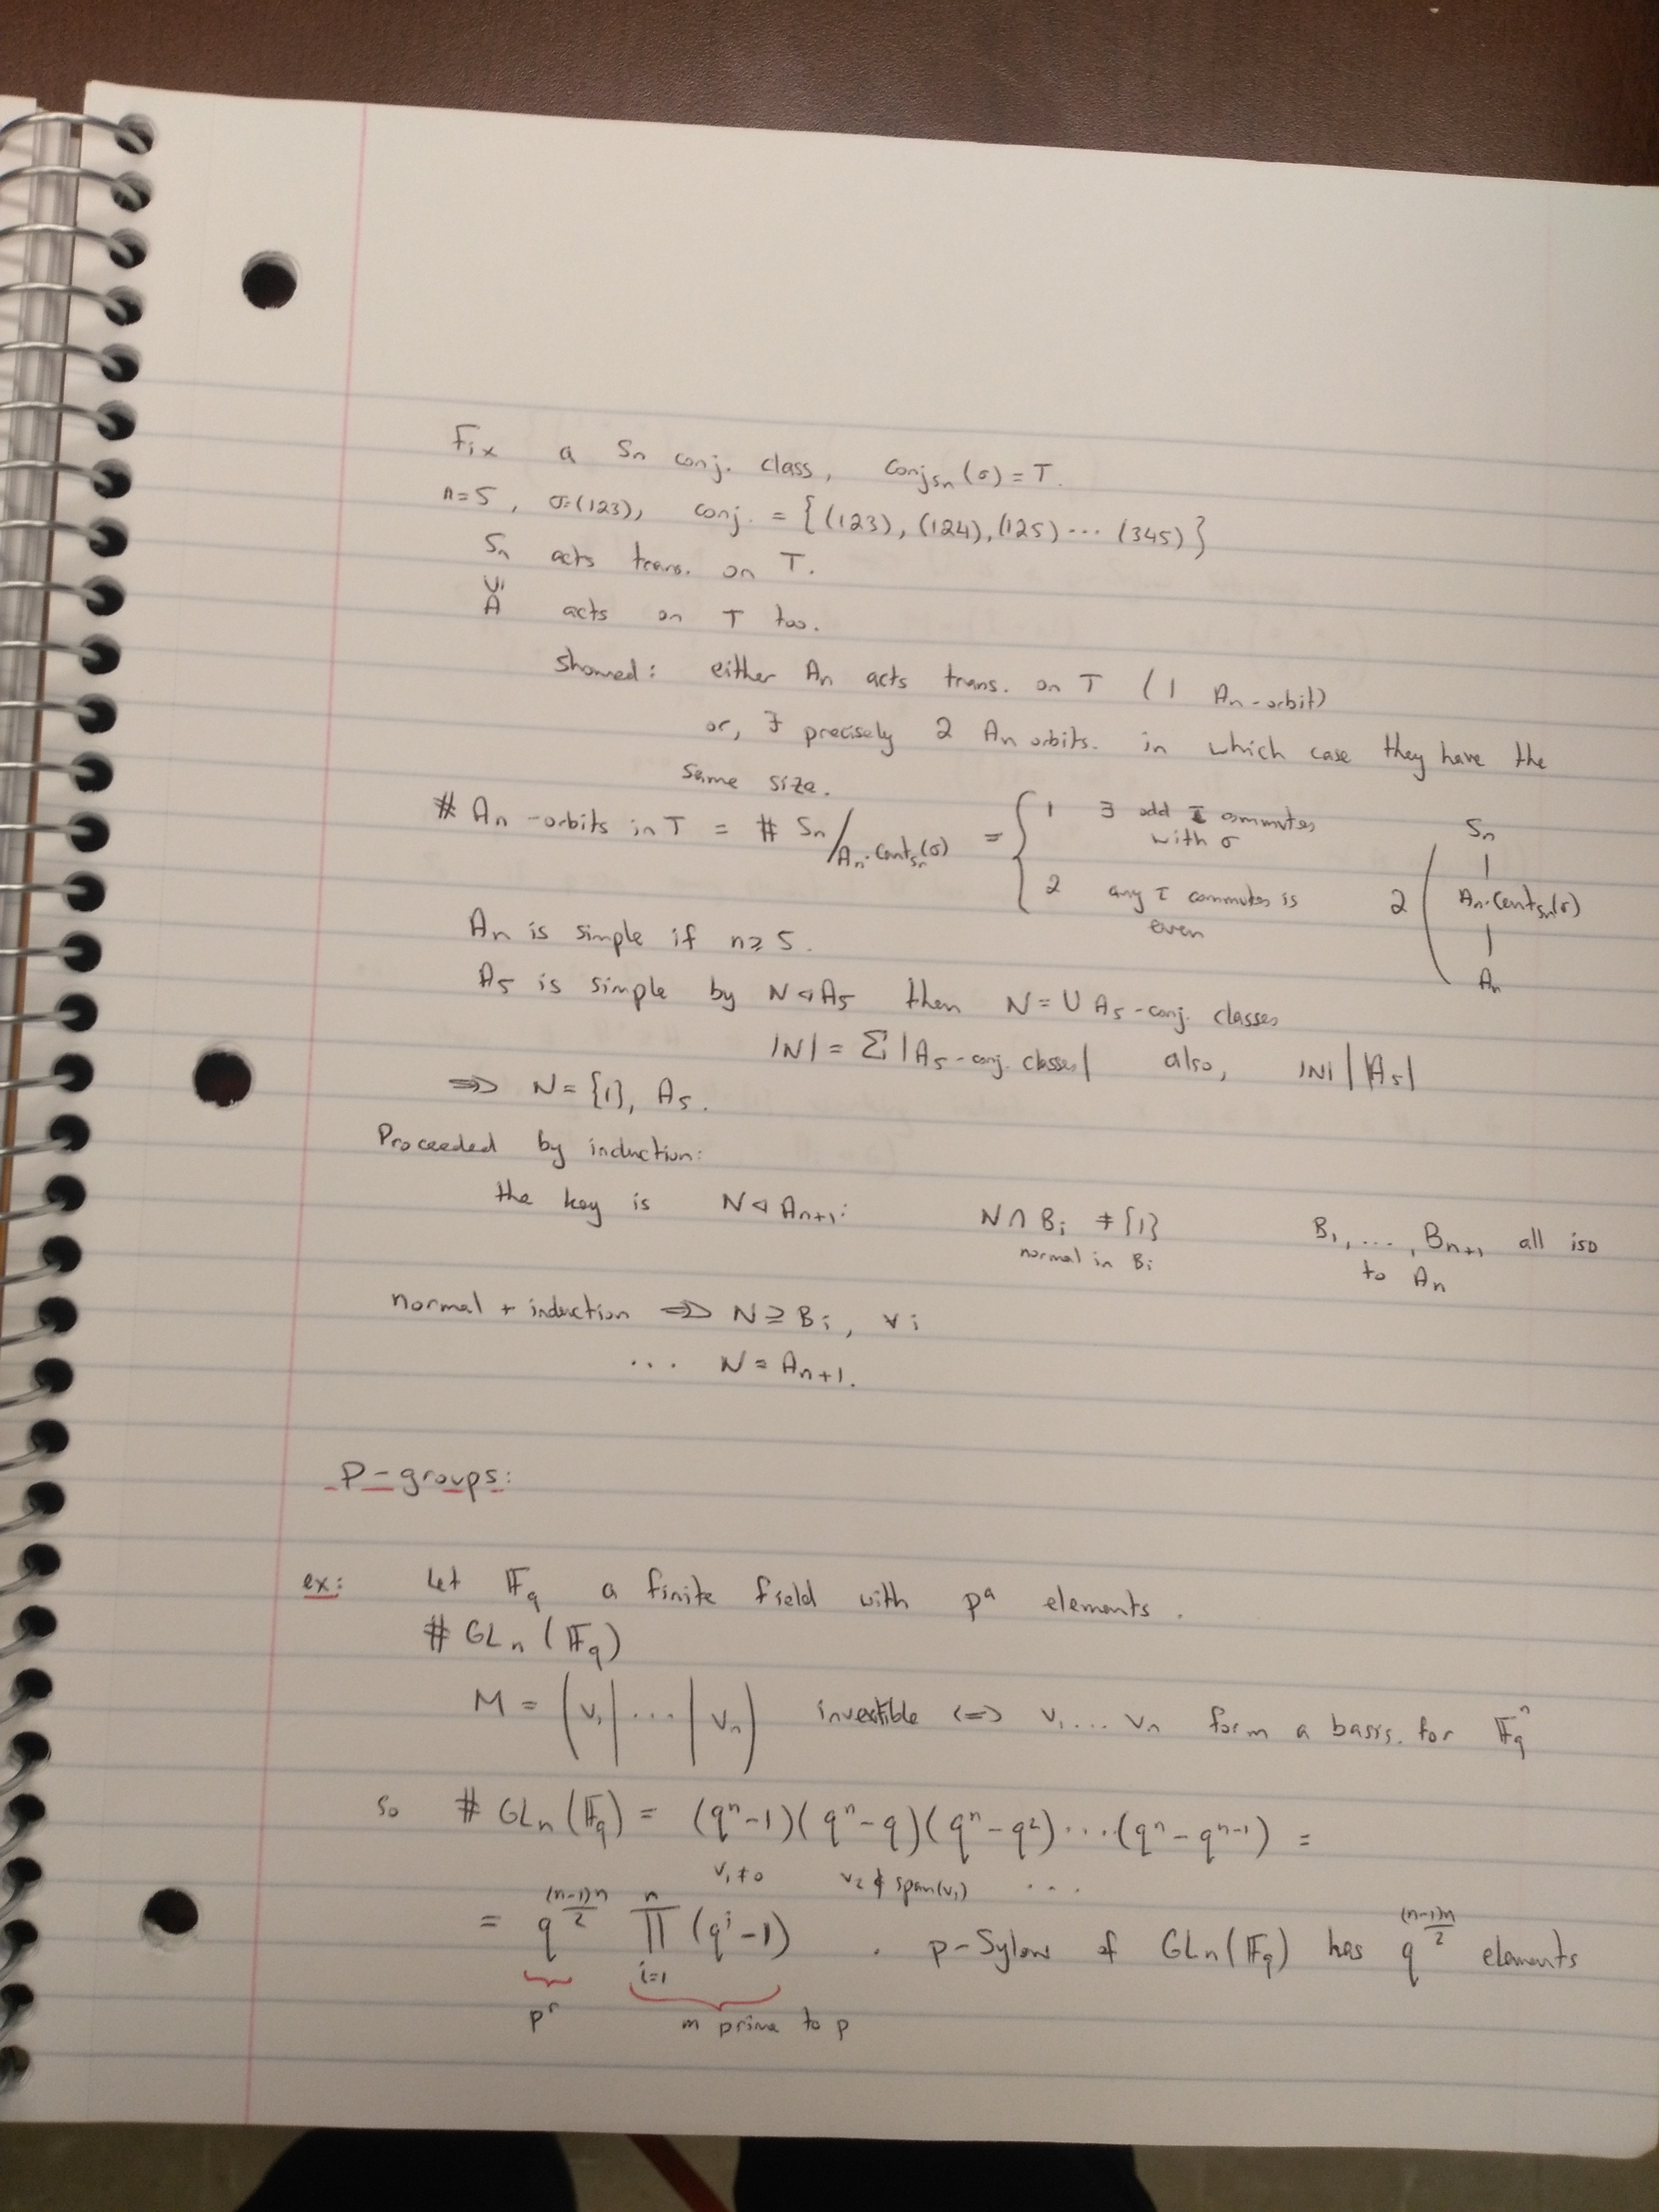 Fix a Sn conj. class, Conj_Sn (σ) = T.
n=5, σ=(123), conj. = {(123), (124), (125) ... (345)}
Sn acts trans. on T.
∪|
A acts on T too.
showed: either An acts trans. on T (1 An-orbit)
or, ∃ precisely 2 An orbits. in which case they have the
same size.
# An-orbits in T = # Sn/An·Cent_Sn(σ) = { 1 ∃ odd τ commutes with σ
2 any τ commutes is even
2 ( Sn | An·Cent_Sn(σ) | An
An is simple if n≥5.
A5 is simple by N ◁ A5 then N = ∪ A5-conj. classes
|N| = Σ |A5-conj. classes| also, |N| | |A5|
⇒ N = {1}, A5.
Proceeded by induction:
the key is N ◁ An+1: N ∩ Bi ≠ {1} B1, ..., Bn+1 all iso
normal in Bi to An
normal + induction ⇒ N ⊇ Bi, ∀i
... N = An+1.
P-groups:
ex: Let 𝔽q a finite field with p^a elements.
# GLn (𝔽q)
M = (v1 | ... | vn) invertible <=> v1 ... vn form a basis. for 𝔽q^n
so # GLn (𝔽q) = (q^n-1)(q^n-q)(q^n-q^2)....(q^n-q^(n-1)) =
v1≠0 v2 ∉ span(v1) ...
= q^((n-1)n/2) ∏_{i=1}^{n} (q^i-1) . p-Sylow of GLn(𝔽q) has q^((n-1)n/2) elements
p^r m prime to p